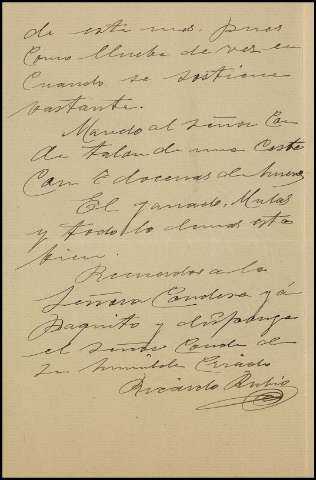 de este mes. pues
Como llueba de vez en
Cuando se sostiene
bastante.
Mando al Señor Con
de talon de una Cesta
Con 6 docenas de huevos
El ganado, Mulas
y todo lo demas esta
bien.
Recuerdos a la
Señora Condesa y á
Paquito y disponga
el Señor Conde de
Su humilde Criado
Ricardo Rubio